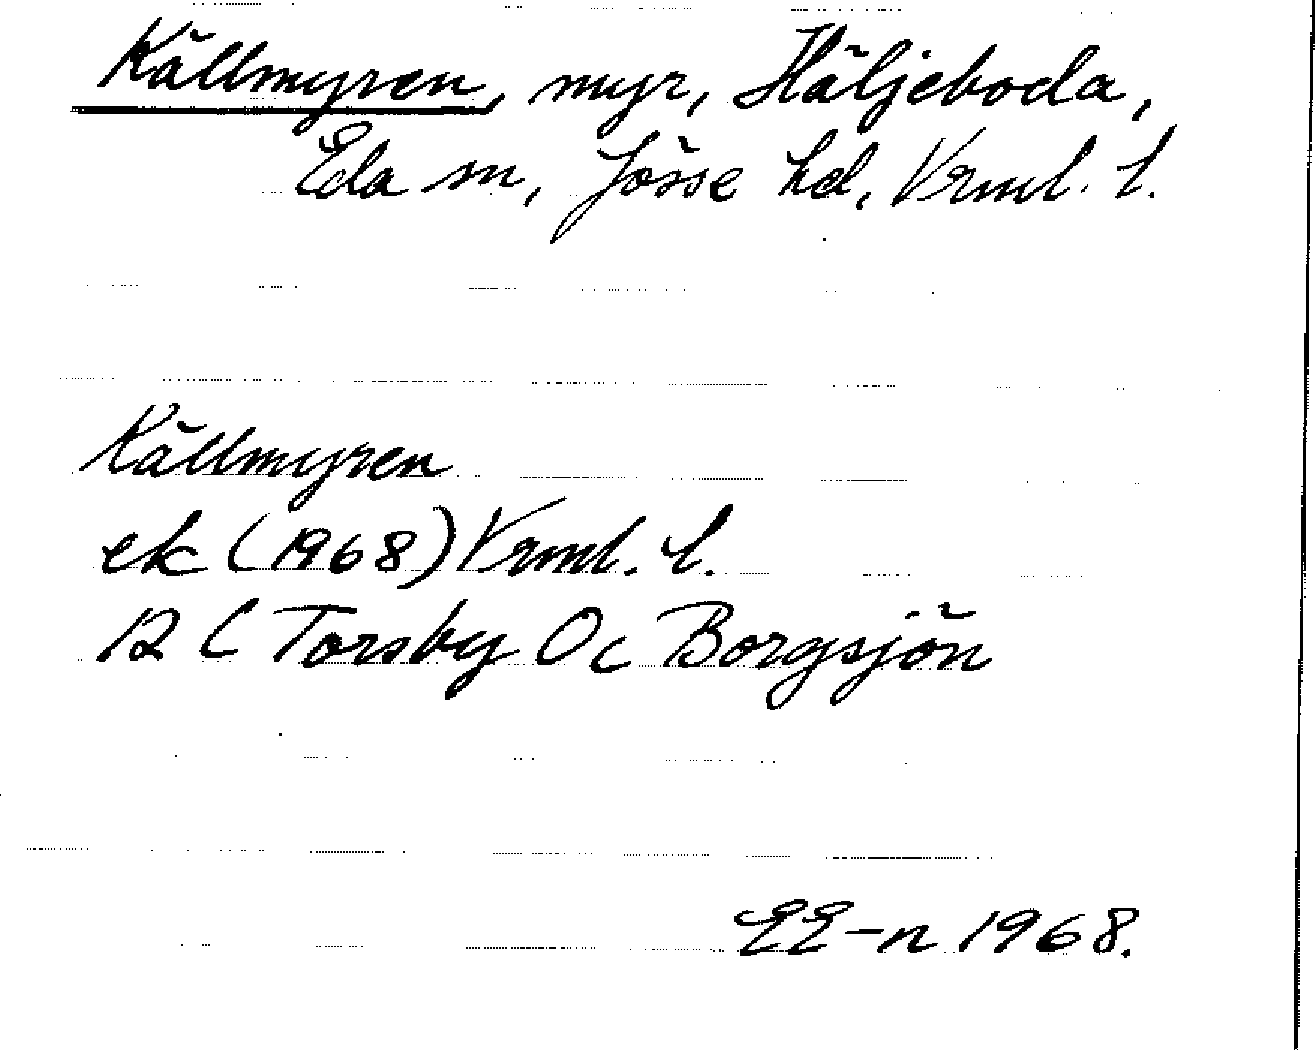 Källmyren, myr, Häljeboda,
Eda sn, Jösse hd, Vrml. l.
Källmyren
ek (1968) Vrml. l.
12 C Torsby Oc Borgsjön
EE-n 1968.